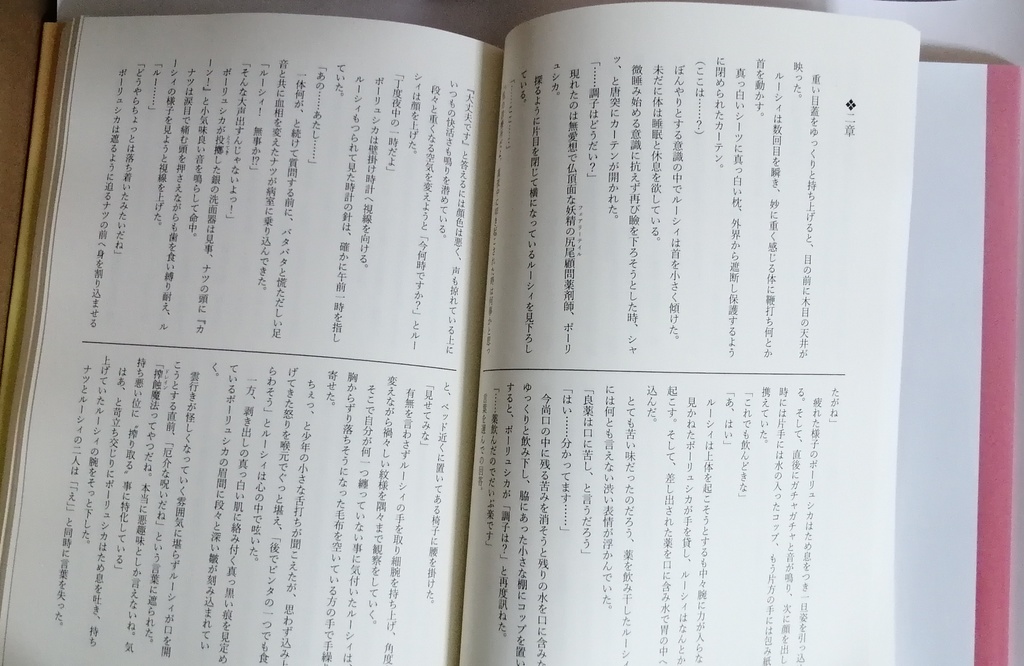 ❖二章
重い目蓋をゆっくりと持ち上げると、目の前に木目の天井が
映った。
ルーシィは数回目を瞬き、妙に重く感じる体に鞭打ち何とか
首を動かす。
真っ白いシーツに真っ白い枕、外界から遮断し保護するよう
に閉められたカーテン。
(ここは……？)
ぼんやりとする意識の中でルーシィは首を小さく傾けた。
未だに体は睡眠と休息を欲している。
微睡み始める意識に抗えず再び瞼を下ろそうとした時、シャ
ッ、と唐突にカーテンが開かれた。
「……調子はどうだい？」
現れたのは無愛想で仏頂面な妖精の尻尾顧問薬剤師、ポーリ
フェアリーテイル
ュシカ。
探るように片目を閉じて横になっているルーシィを見下ろし
ている。
たがね」
疲れた様子のポーリュシカはため息をつき一旦姿を引っ込
る。そして、直後にガチャガチャと音が鳴り、次に顔を出し
時には片手には水の入ったコップ、もう片方の手には包み紙
携えていた。
「これでも飲んどきな」
「あ、はい」
ルーシィは上体を起こそうとするも中々腕に力が入らな
見かねたポーリュシカが手を貸し、ルーシィはなんとか
起こす。そして、差し出された薬を口に含み水で胃の中へ
込んだ。
とても苦い味だったのだろう、薬を飲み干したルーシィ
には何とも言えない渋い表情が浮かんでいた。
「良薬は口に苦し、と言うだろう」
「はい……分かってます……」
今尚口の中に残る苦みを消そうと残りの水を口に含みな
ゆっくりと飲み下し、脇にあった小さな棚にコップを置い
すると、ポーリュシカが「調子は？」と再度訊ねた。
「……薬飲んだのでだいぶ楽です」
言葉を選んでの回答。
『大丈夫です』と答えるには顔色は悪く、声も掠れている上に
いつもの快活さも鳴りを潜めている。
段々と重くなる空気を変えようと「今何時ですか？」とルー
シィは顔を上げた。
「丁度夜中の一時だよ」
ポーリュシカは壁掛け時計へ視線を向ける。
ルーシィもつられて見た時計の針は、確かに午前一時を指し
ていた。
「あの……あたし……」
一体何が、と続けて質問する前に、バタバタと慌ただしい足
音と共に血相を変えたナツが病室に乗り込んできた。
「ルーシィ！　無事か!?」
「そんな大声出すんじゃないよっ！」
ポーリュシカが投擲した銀の洗面器は見事、ナツの頭に『カ
ーン！』と小気味良い音を鳴らして命中。
ナツは涙目で痛む頭を押さえながらも歯を食い縛り耐え、ル
ーシィの様子を見ようと視線を上げた。
「ルー……」
「どうやらちょっとは落ち着いたみたいだね」
ポーリュシカは遮るように迫るナツの前へ身を割り込ませる
と、ベッド近くに置いてある椅子に腰を掛けた。
「見せてみな」
有無を言わさずルーシィの手を取り細腕を持ち上げ、角度
変えながら禍々しい紋様を隅々まで観察をしていく。
そこで自分が何一つ纏っていない事に気付いたルーシィは、
胸からずり落ちそうになった毛布を空いている方の手で手繰
寄せた。
ちぇっ、と少年の小さな舌打ちが聞こえたが、思わず込み上
げてきた怒りを喉元でぐっと堪え、「後でビンタの一つでも食
らわそう」とルーシィは心の中で呟いた。
一方、剥き出しの真っ白い肌に絡み付く真っ黒い痕を見定め
ているポーリュシカの眉間に段々と深い皺が刻み込まれてい
く。
雲行きが怪しくなっていく雰囲気に堪らずルーシィが口を開
こうとする直前、「厄介な呪いだね」という言葉に遮られた。
「搾蝕魔法ってやつだね。本当に悪趣味としか言えないね。気
持ち悪い位に〝搾り取る〟事に特化している」
はあ、と苛立ち交じりにポーリュシカはため息を吐き、持ち
上げていたルーシィの腕をそっと下した。
ナツとルーシィの二人は「え」と同時に言葉を失った。